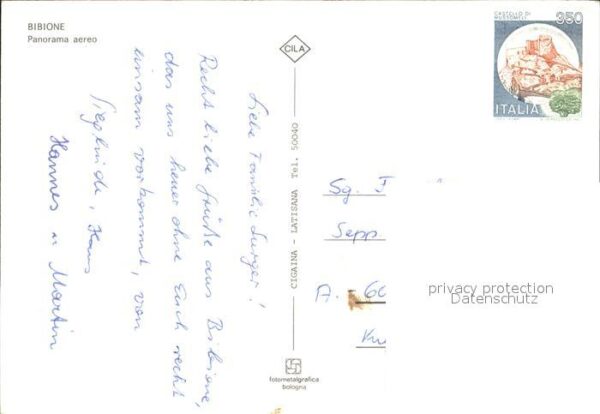 BIBIONE
Panorama aereo
Liebe Familie
Recht liebe Grüße aus Bibione,
das uns heuer ohne Euch recht
einsam vorkommt, von
Sieglinde, Hans
Hannes u Martin
CILA
CIGAINA - LATISANA Tel. 50040
fotometalgrafica
bologna
CASTELLO DI
MUSSOMELI
350
ITALIA
Sg.
Sepp
A.
privacy protection
Datenschutz